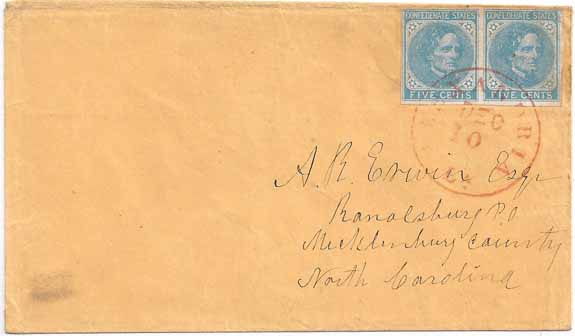 CONFEDERATE STATES CONFEDERATE STATES
FIVE CENTS FIVE CENTS
DEC
10
A. R. Erwin Esqr
Ranalsburg P.O
Mecklenburg County
North Carolina